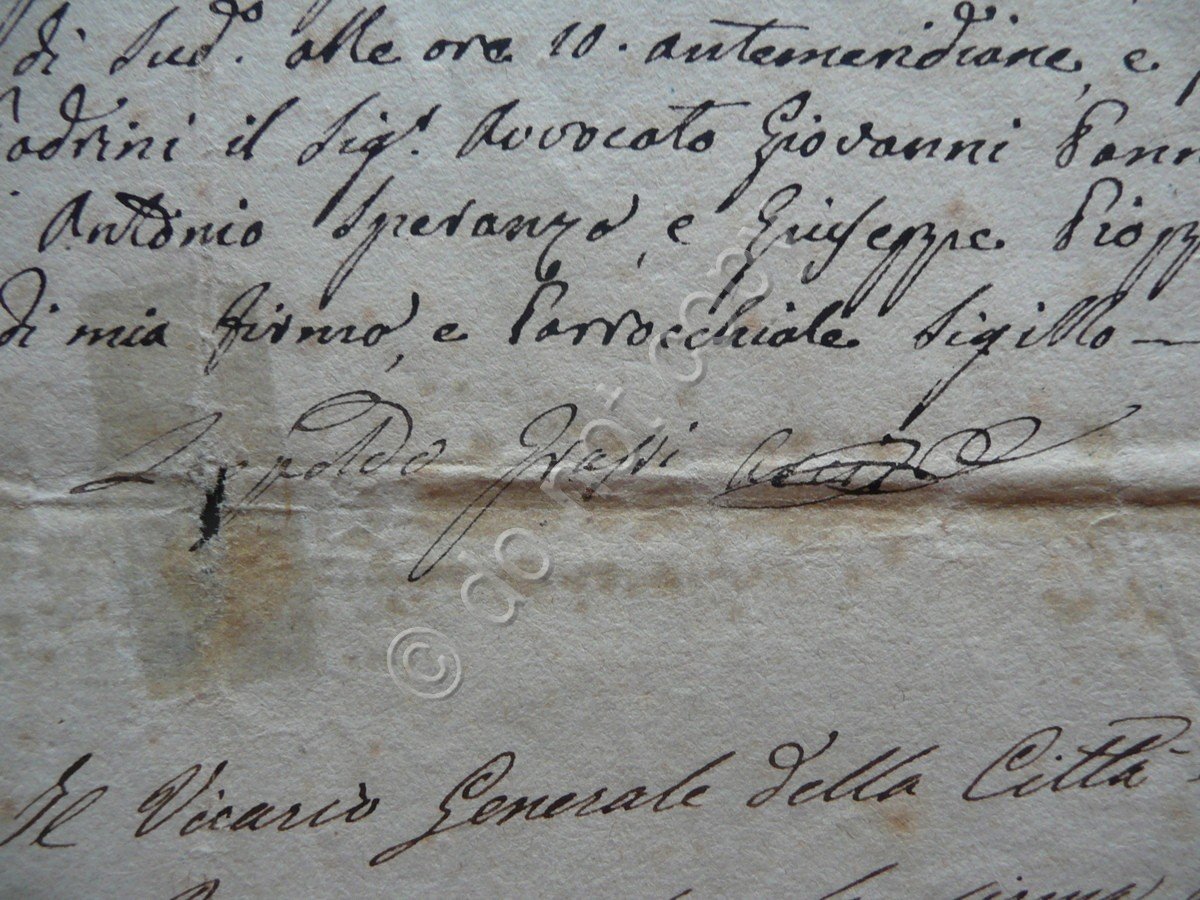 di Sud.º alle ore 10. antemeridiane, e
Padrini il Sig.r Avvocato Giovanni
Antonio Speranza, e Giuseppe
di mia firma, e Parrocchiale Sigillo —
Leopoldo Grassi
© do.mi.
Il Vicario Generale della Città